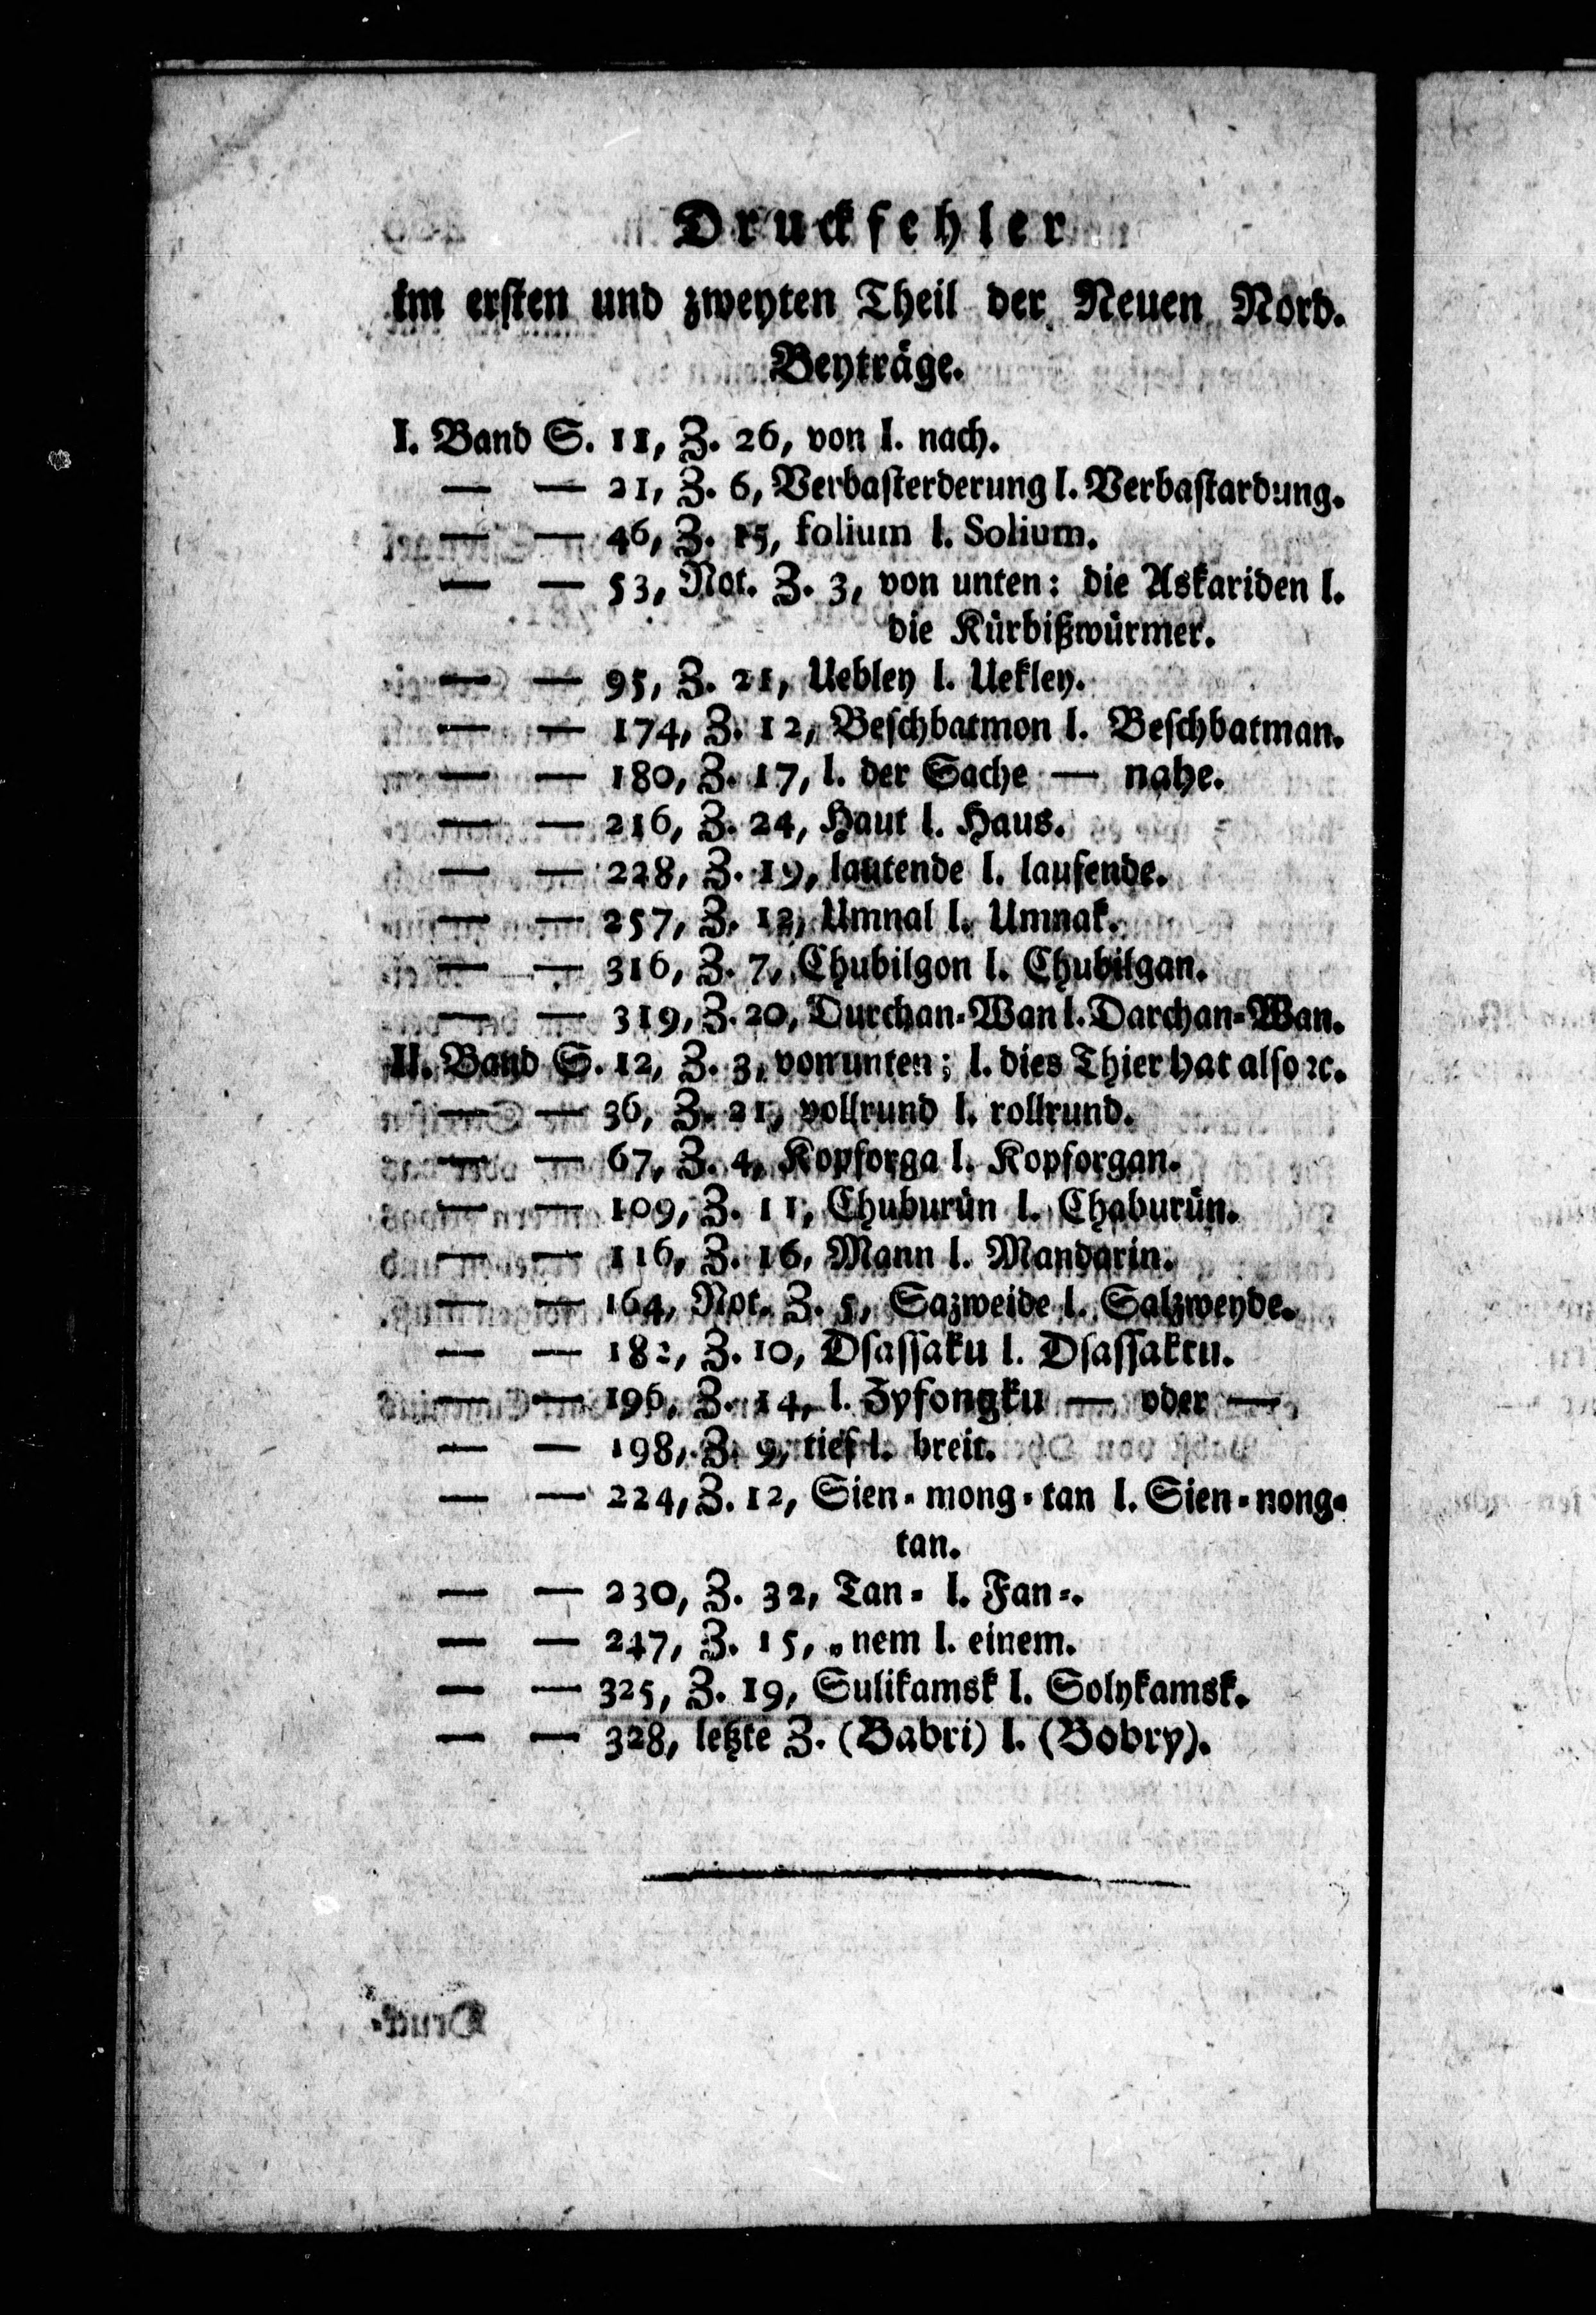 Druckfehler
im ersten und zweyten Theil der Neuen Nord.
Beyträge.
I. Band S. 11, Z. 26, von l. nach.
— — 21, Z. 6, Verbasterderung l. Verbastardung.
— — 46, Z. 15, folium l. Solium.
— — 53, Not. Z. 3, von unten: die Askariden l.
die Kürbißwürmer.
— — 95, Z. 21, Uebley l. Uekley.
— — 174, Z. 12, Beschbatmon l. Beschbatman.
— — 180, Z. 17, l. der Sache — nahe.
— — 216, Z. 24, Haut l. Haus.
— — 228, Z. 19, lautende l. laufende.
— — 257, Z. 12, Umnal l. Umnak.
— — 316, Z. 7, Chubilgon l. Chubilgan.
— — 319, Z. 20, Durchan-Wan l. Darchan-Wan.
II. Band S. 12, Z. 3, von unten; l. dies Thier hat also ꝛc.
— — 36, Z. 21, vollrund l. rollrund.
— — 67, Z. 4, Kopforga l. Kopforgan.
— — 109, Z. 11, Chuburün l. Chaburün.
— — 116, Z. 16, Mann l. Mandarin.
— — 164, Not. Z. 5, Sazweide l. Salzweyde.
— — 182, Z. 10, Dsassaku l. Dsassaktu.
— — 196, Z. 14, l. Zyfongku — oder —
— — 198, Z. 9, tief l. breit.
— — 224, Z. 12, Sien-mong-tan l. Sien-nong-
tan.
— — 230, Z. 32, Tan- l. Fan-.
— — 247, Z. 15, „nem l. einem.
— — 325, Z. 19, Sulikamsk l. Solykamsk.
— — 328, letzte Z. (Babri) l. (Bobry).